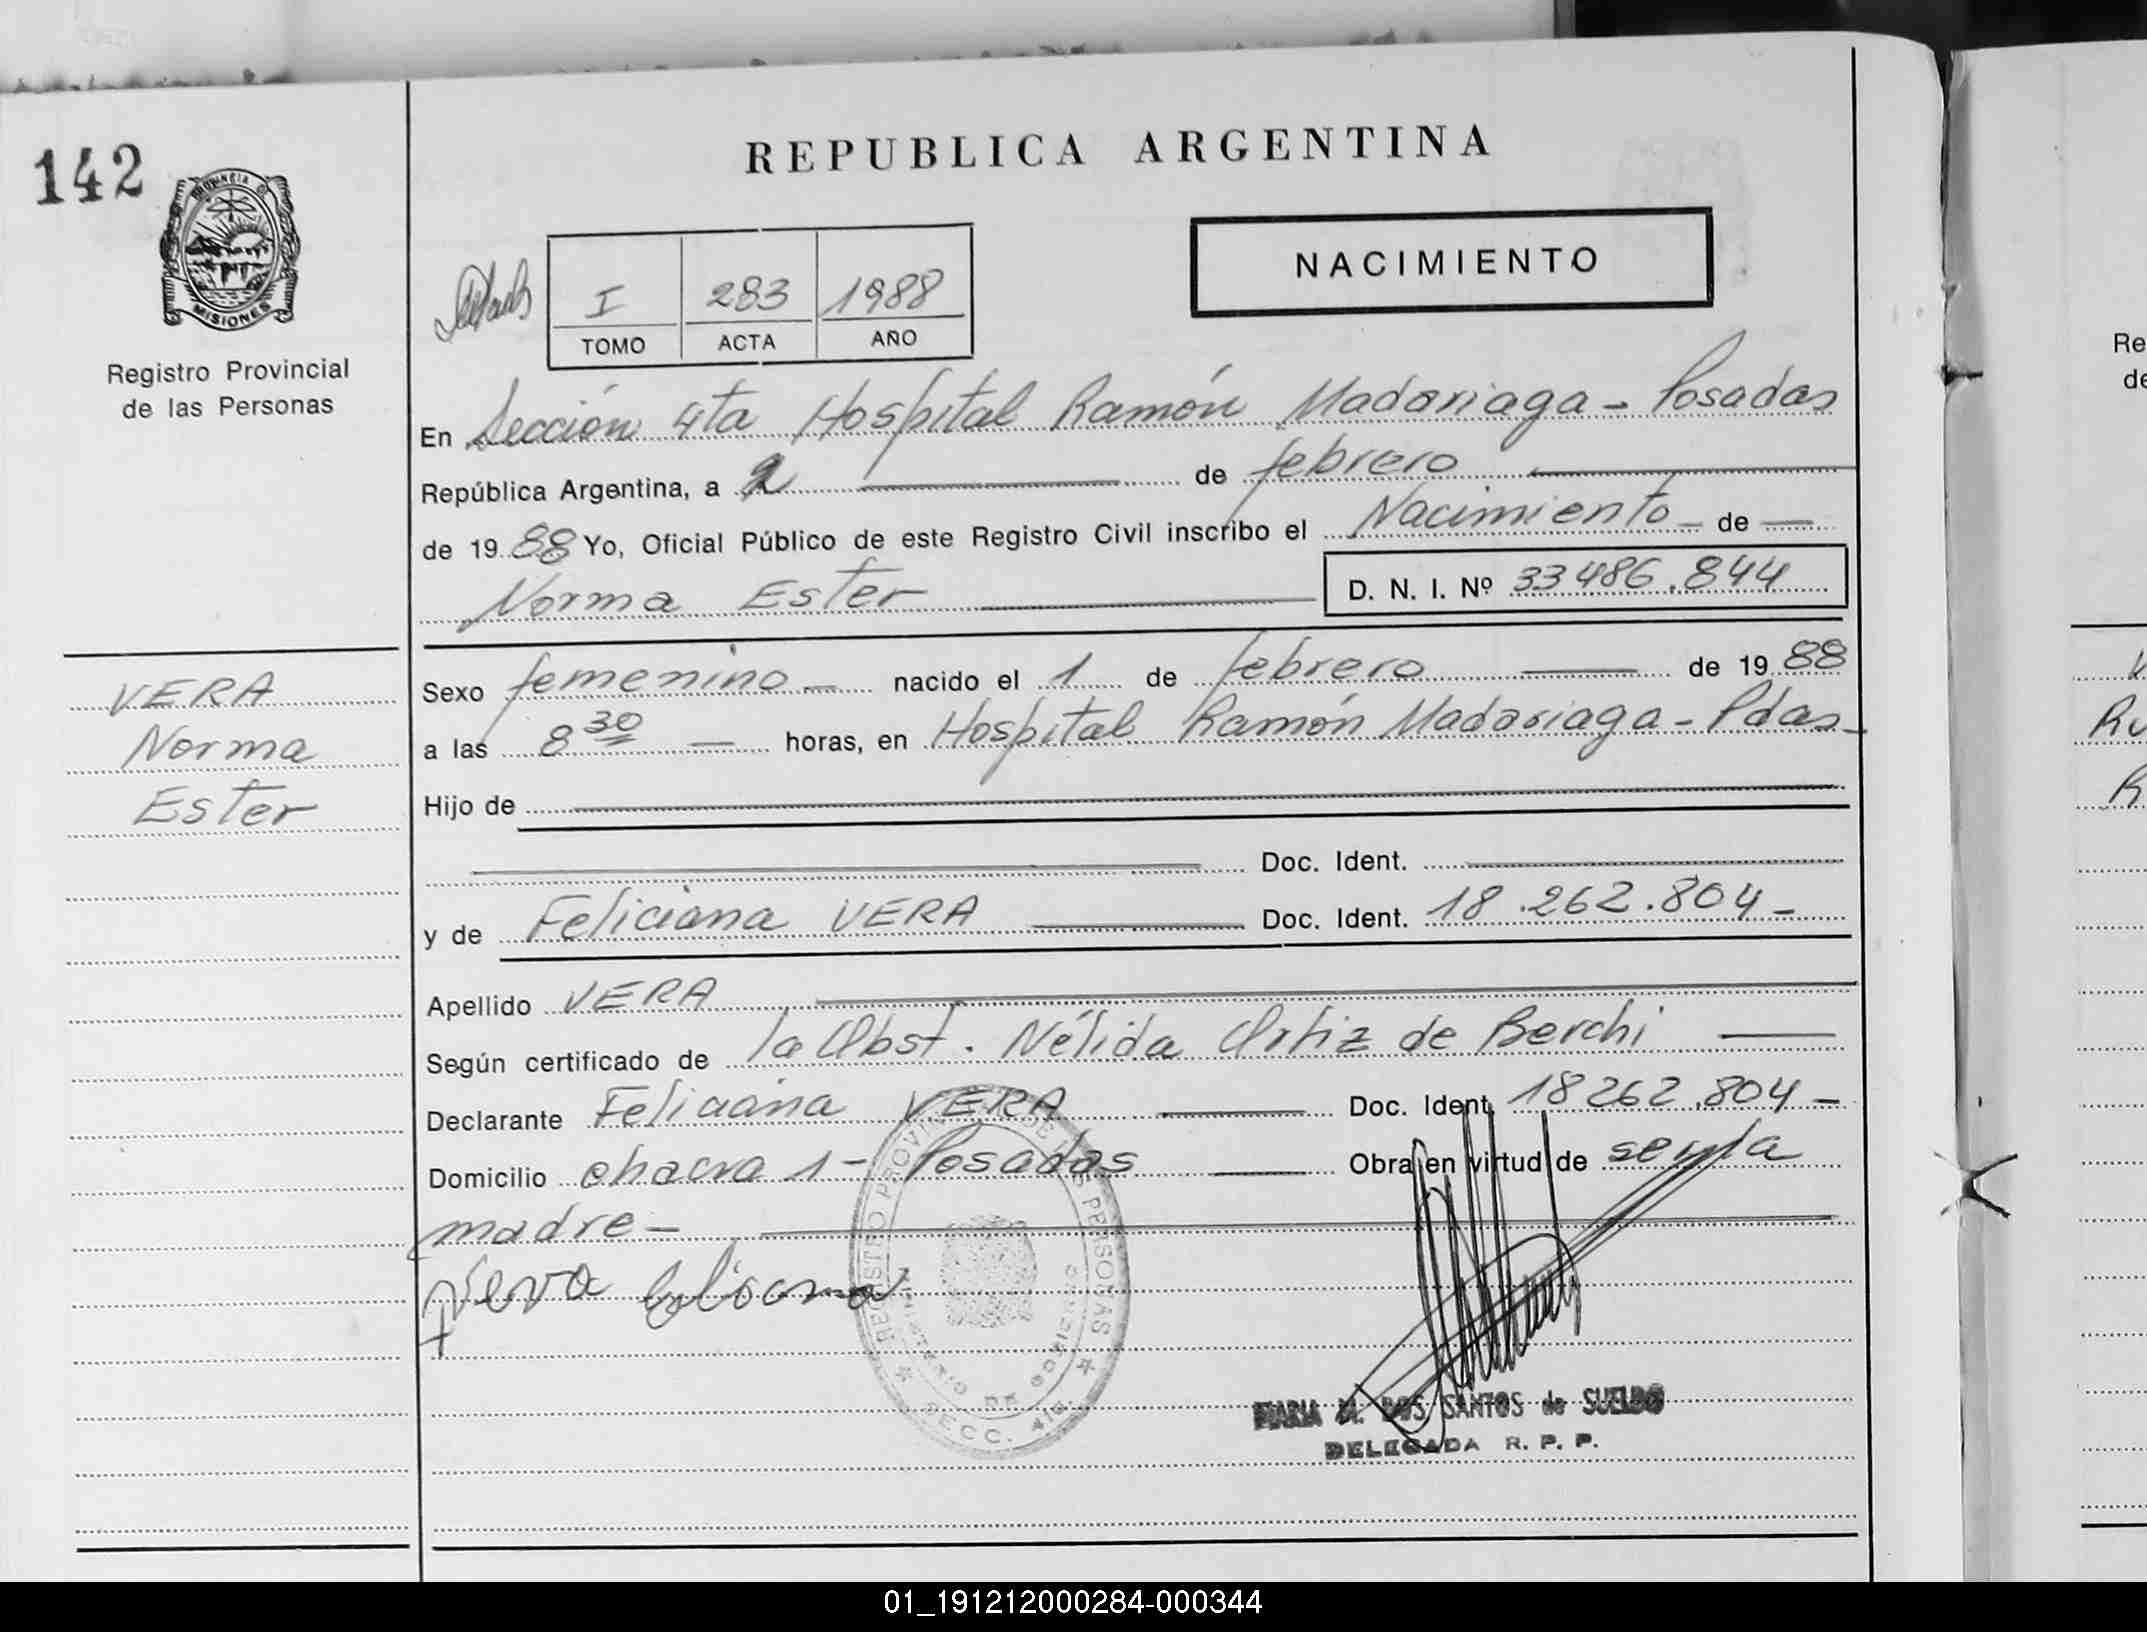 142
PROVINCIA D
MISIONES
Registro Provincial
de las Personas
VERA
Norma
Ester
REPUBLICA ARGENTINA
I 283 1988
TOMO ACTA AÑO
NACIMIENTO
En Sección 4ta Hospital Ramón Madariaga - Posadas
República Argentina, a 2 de febrero
de 19 88 Yo, Oficial Público de este Registro Civil inscribo el Nacimiento - de
Norma Ester D. N. I. Nº 33486.844
Sexo femenino nacido el 1 de febrero de 19 88
a las 8 30 horas, en Hospital Ramón Madariaga - Pdas -
Hijo de
Doc. Ident.
y de Feliciana VERA Doc. Ident. 18.262.804 -
Apellido VERA
Según certificado de la Obst. Nélida Ortiz de Berchi
Declarante Feliciana VERA Doc. Ident. 18262.804 -
Domicilio chacra 1 - Posadas Obra en virtud de ser la
madre -
REGISTRO PROVINCIAL DE LAS PERSONAS
MINISTERIO DE GOBIERNO
SECC. 4ta.
MARIA M. DOS SANTOS de SUELDO
DELEGADA R. P. P.
Re
de
01_191212000284-000344